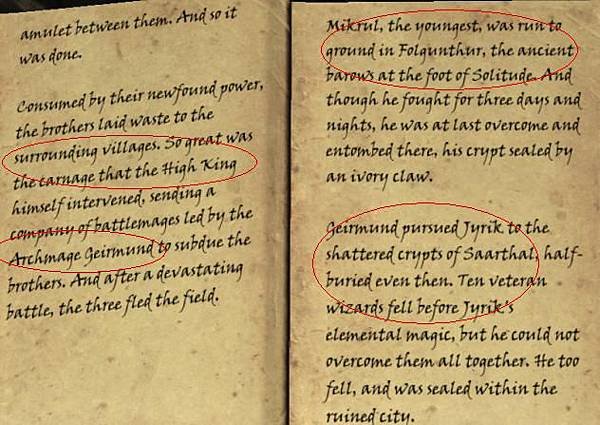 amulet between them. And so it
was done.
Consumed by their newfound power,
the brothers laid waste to the
surrounding villages. So great was
the carnage that the High King
himself intervened, sending a
company of battlemages led by the
Archmage Geirmund to subdue the
brothers. And after a devastating
battle, the three fled the field.
Mikrul, the youngest, was run to
ground in Folgunthur, the ancient
barows at the foot of Solitude. And
though he fought for three days and
nights, he was at last overcome and
entombed there, his crypt sealed by
an ivory claw.
Geirmund pursued Jyrik to the
shattered crypts of Saarthal, half-
buried even then. Ten veteran
wizards fell before Jyrik's
elemental magic, but he could not
overcome them all together. He too
fell, and was sealed within the
ruined city.